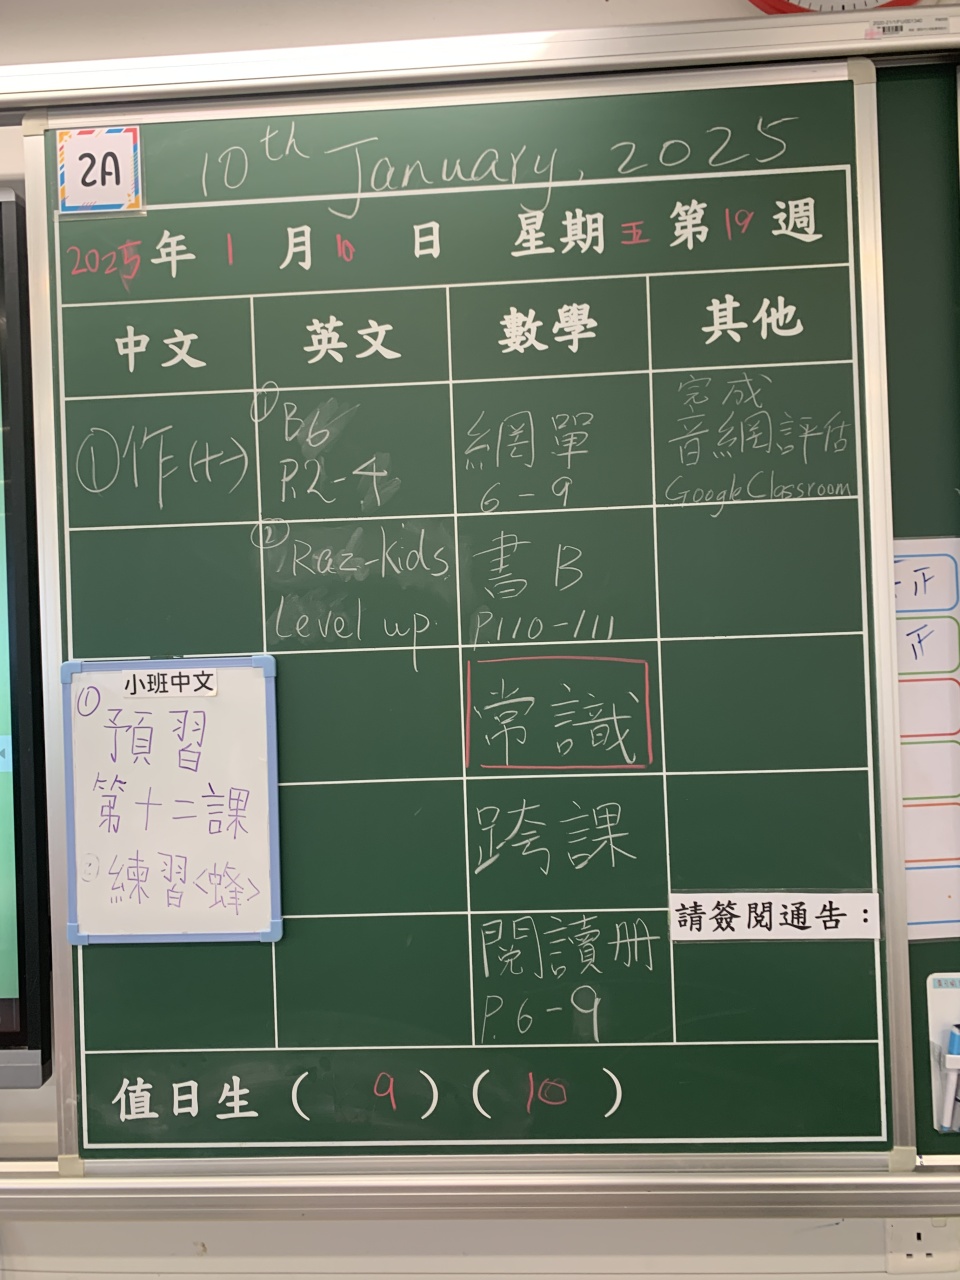 2A
10th January, 2025
2025年1月10日 星期五 第19週
中文 英文 數學 其他
①作(十一)
①B6
P.2-4
②Raz-kids
Level up
網單
6-9
書B
P.110-111
常識
跨課
閱讀册
P.6-9
完成
音網評估
Google Classroom
小班中文
①預習
第十二課
②練習<蜂>
請簽閱通告：
值日生(9)(10)
正